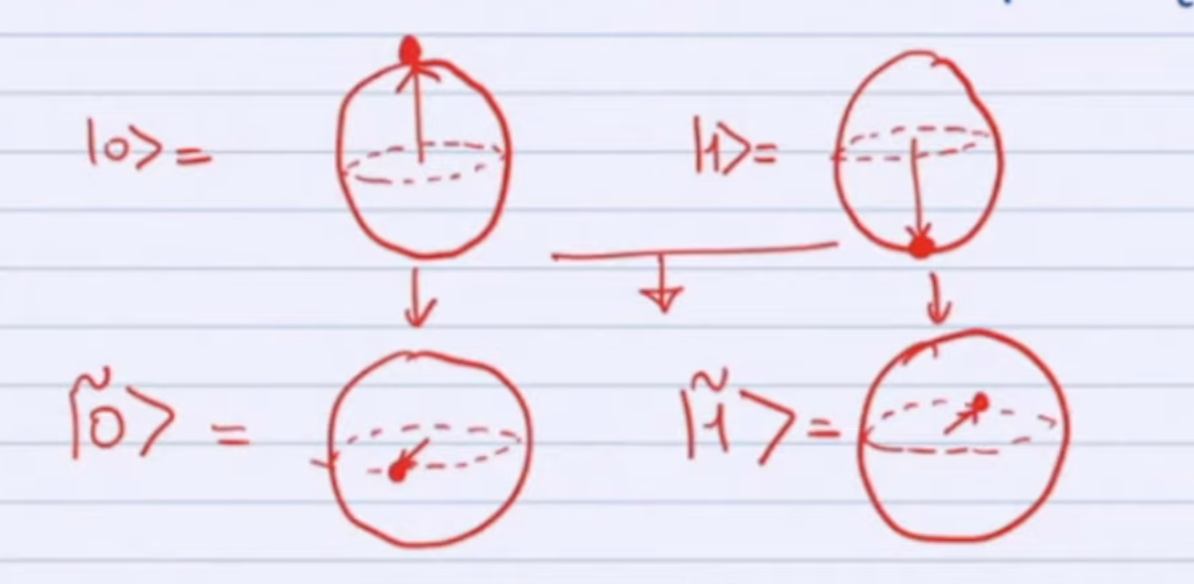 |0⟩ = |1⟩ =
|0̃⟩ = |1̃⟩ =